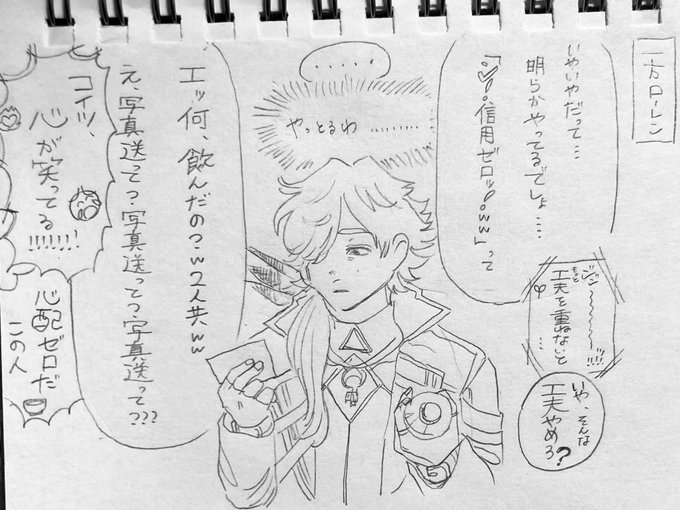 一方ローレン
いやいやだって…
明らかやってるでしょ…
信用ゼロッ!。ww」って
ジジ〜〜〜〜!!!!
もっと
工夫を重ねないと
…
いや、そんな
工夫やめろ?
・・・・・
やっとるわ………
エッ何、飲んだの?w2人共ww
え、写真送って?写真送って?写真送って???
コイツ、
心が笑ってる
!!!!!!
心配ゼロだ
この人